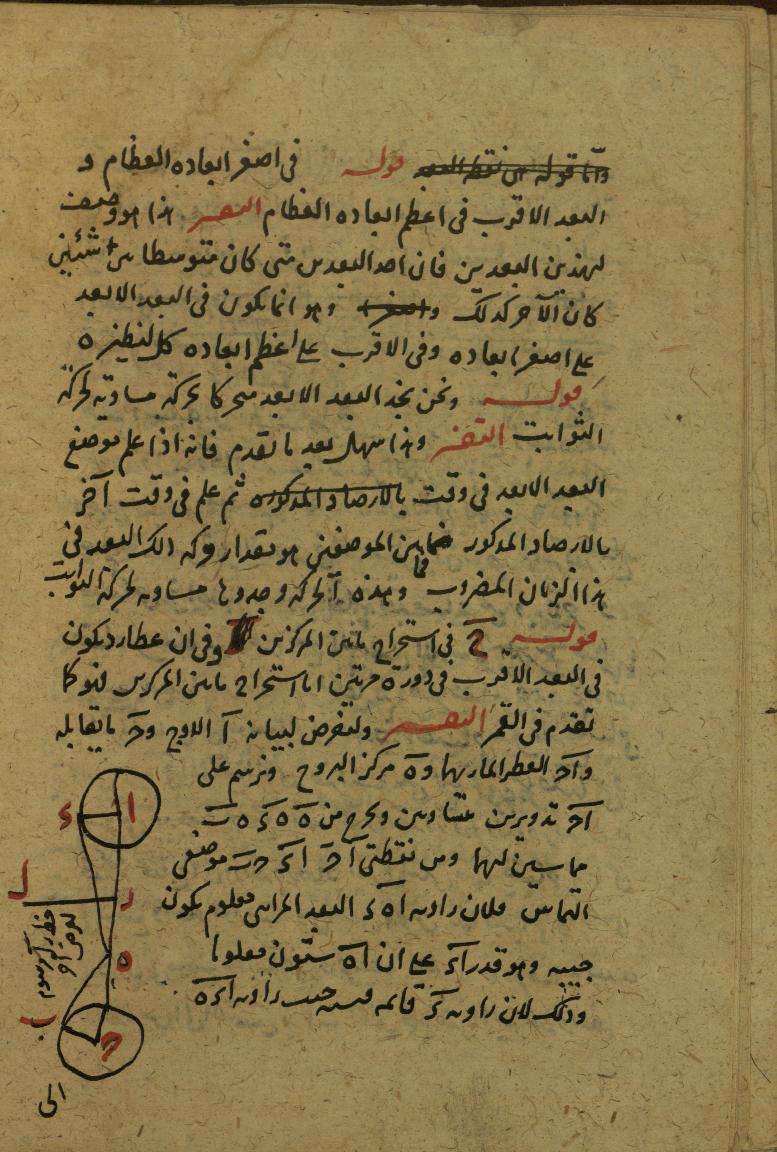 قوله في اصغر ابعاده العظام و
البعد الاقرب في اعظم ابعاده العظام التفسير هذا هو وصف
لهذين البعدين فان احد البعدين متى كان متوسطا بين شيئين
كان الآخر كذلك وهو انما يكون في البعد الابعد
على اصغر ابعاده وفي الاقرب على اعظم ابعاده كل لنظيره
قوله ونحن نجد البعد الابعد متحركا بحركة مساوية لحركة
الثوابت التفسير وهذا سهل بعد ما تقدم فانه اذا علم موضع
البعد الابعد في وقت بالارصاد المذكورة ثم علم في وقت آخر
بالارصاد المذكور فما بين الموضعين هو مقدار حركة ذلك البعد في
هذا الزمان المضروب وهذه الحركة وجدوها مساوية لحركة الثوابت
قوله ح في استخراج ما بين المركزين وفي ان عطارد يكون
في البعد الاقرب في دورة مرتين اما استخراج ما بين المركزين فهو كما
تقدم في القمر التفسير ولنفرض لبيانه آ الاوج وحـ ما يقابله
و آحـ القطر المار بهما و ه مركز البروج ونرسم على
آ حـ تدويرين متساويين ونخرج من ه ه ء ه ب
مماسين لهما ومن نقطتي آ حـ آ ء حـ ب موضعي
التماس فلان زاوية ا ه ء البعد المرئي معلوم يكون
جيبه وهو قدر آ ء على ان ا ه ستون معلوما
وذلك لان زاوية ء قائمه
ا
ء
ل
ر
ه
ب
حـ
الى